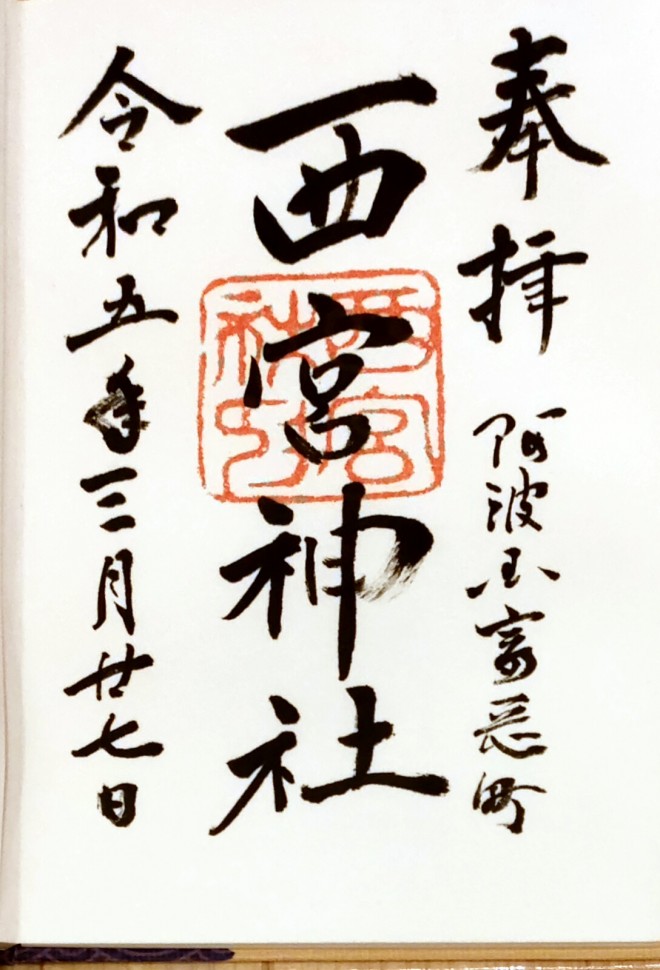 奉拝
阿波国富岡町
西宮神社
令和五年三月廿七日